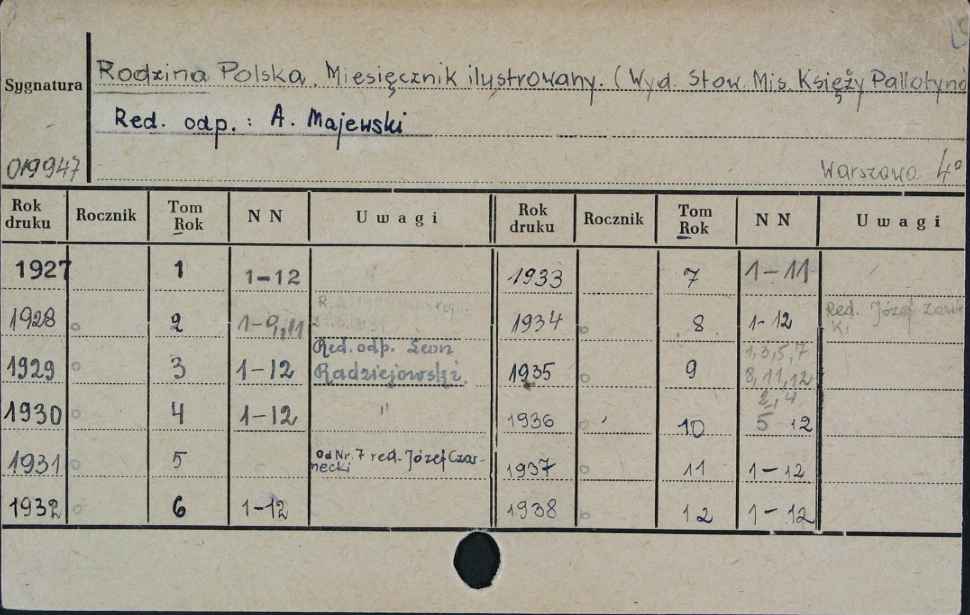 Sygnatura
Rodzina Polska. Miesięcznik ilustrowany. (Wyd. Stow. Mis. Księży Pallotynó
Red. odp.: A. Majewski
019947
Warszawa 4°
Rok druku Rocznik Tom Rok NN Uwagi Rok druku Rocznik Tom Rok NN Uwagi
1927 1 1-12 1933 7 1-11
1928 2 1-9,11 1934 8 1-12 Red. Józef
1929 3 1-12 Red. odp. Leon Radziejowski 1935 9 1,3,5,7 8,11,12
1930 4 1-12 " 1936 10 2,4 5 12
1931 5 Od Nr. 7 red. Józef Czarnecki 1937 11 1-12
1932 6 1-12 1938 12 1-12